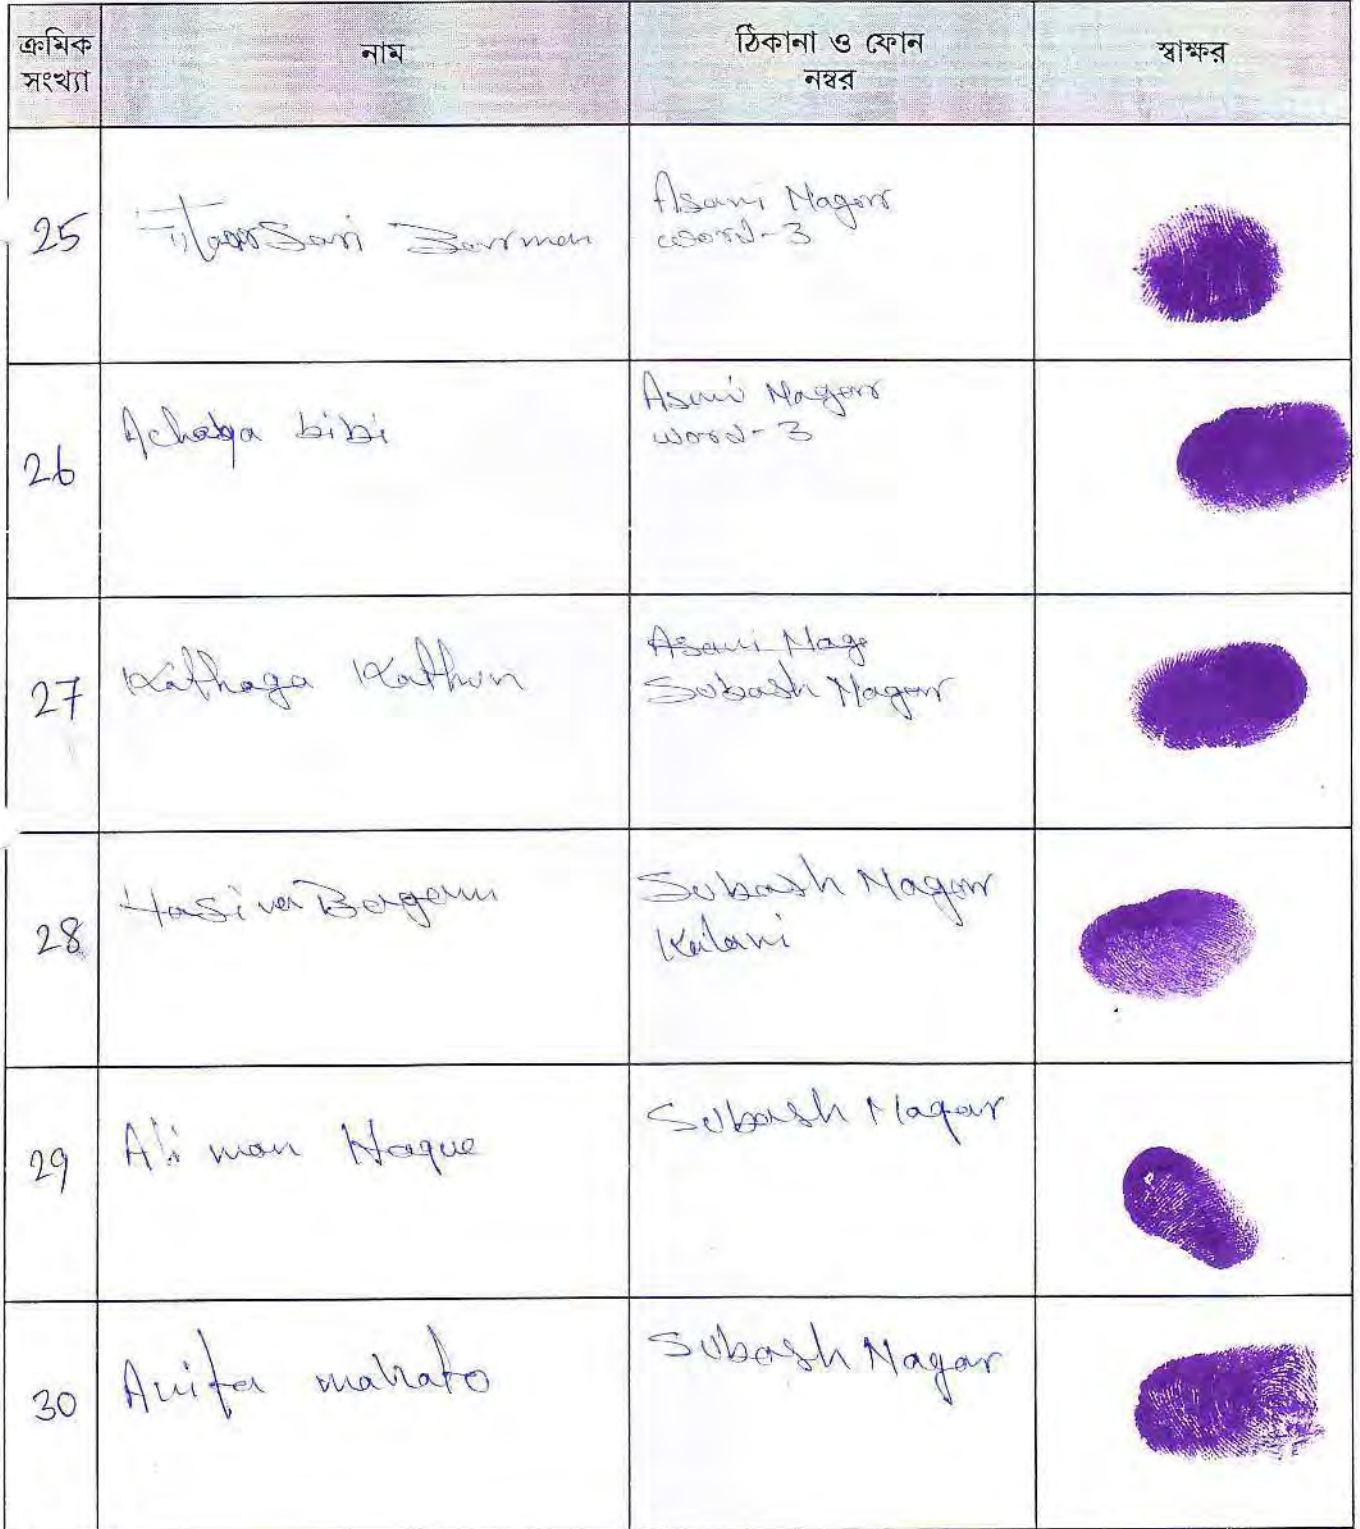 ক্রমিক সংখ্যা নাম ঠিকানা ও ফোন নম্বর স্বাক্ষর
25 Barman Asani Nagar
word-3
26 Achaba bibi Asani Nagar
word-3
27 Kathaga Kathun Asani Nage
Subash Nagar
28 Hasina Begam Subash Nagar
Kalani
29 Ali man Haque Subash Nagar
30 Anita mahato Subash Nagar